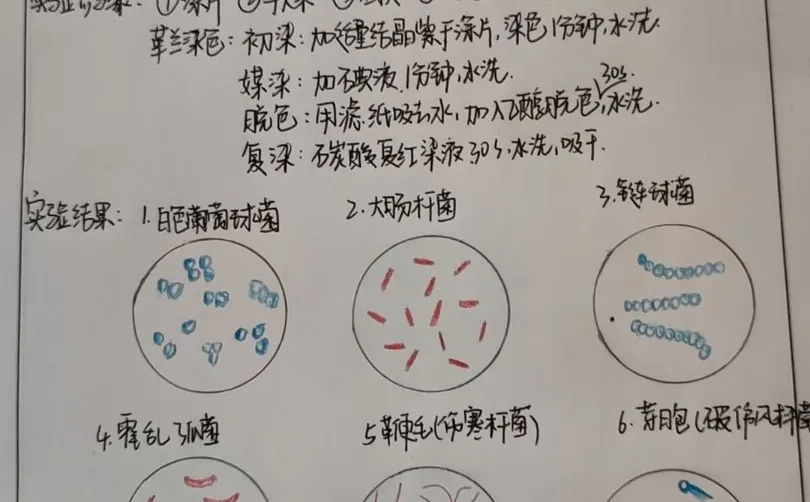 革兰染色：初染：加结晶紫于涂片，染色1分钟，水洗.
媒染：加碘液1分钟，水洗.
30s
脱色：用滤纸吸去水，加入乙醇脱色，水洗.
复染：石炭酸复红染液30s，水洗，吸干.
实验结果：1.白色葡萄球菌 2.大肠杆菌 3.链球菌
4.霍乱弧菌 5.鞭毛(伤寒杆菌) 6.芽胞(破伤风杆菌